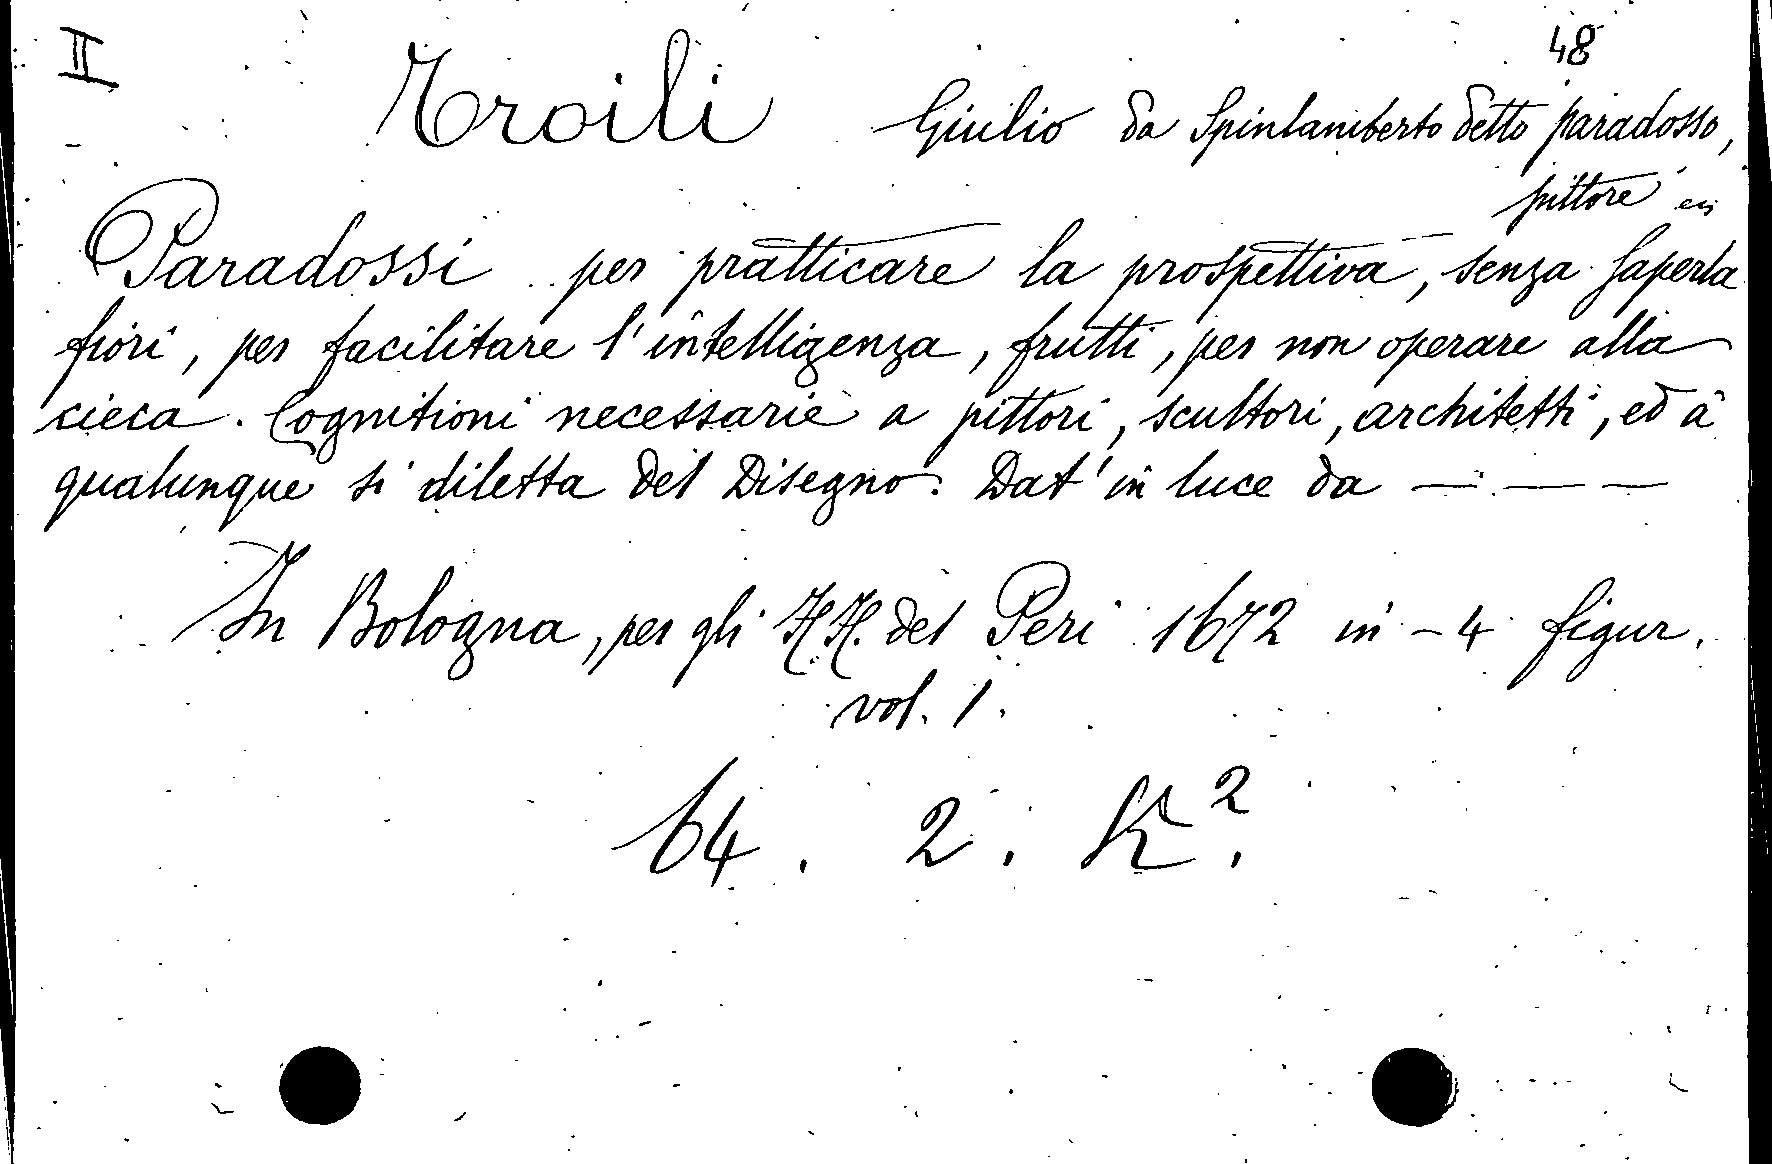 II
48
Troili Giulio da Spinlamberto detto paradosso,
pittore
Paradossi per pratticare la prospettiva, senza saperla
fiori, per facilitare l'intelligenza, frutti, per non operare alla
cieca. Cognitioni necessarie a pittori, scultori, architetti, ed à
qualunque si diletta del Disegno. Dat' in luce da — — —
In Bologna, per gli HH. del Peri 1672 in-4 figur.
vol. 1.
64. 2. K².